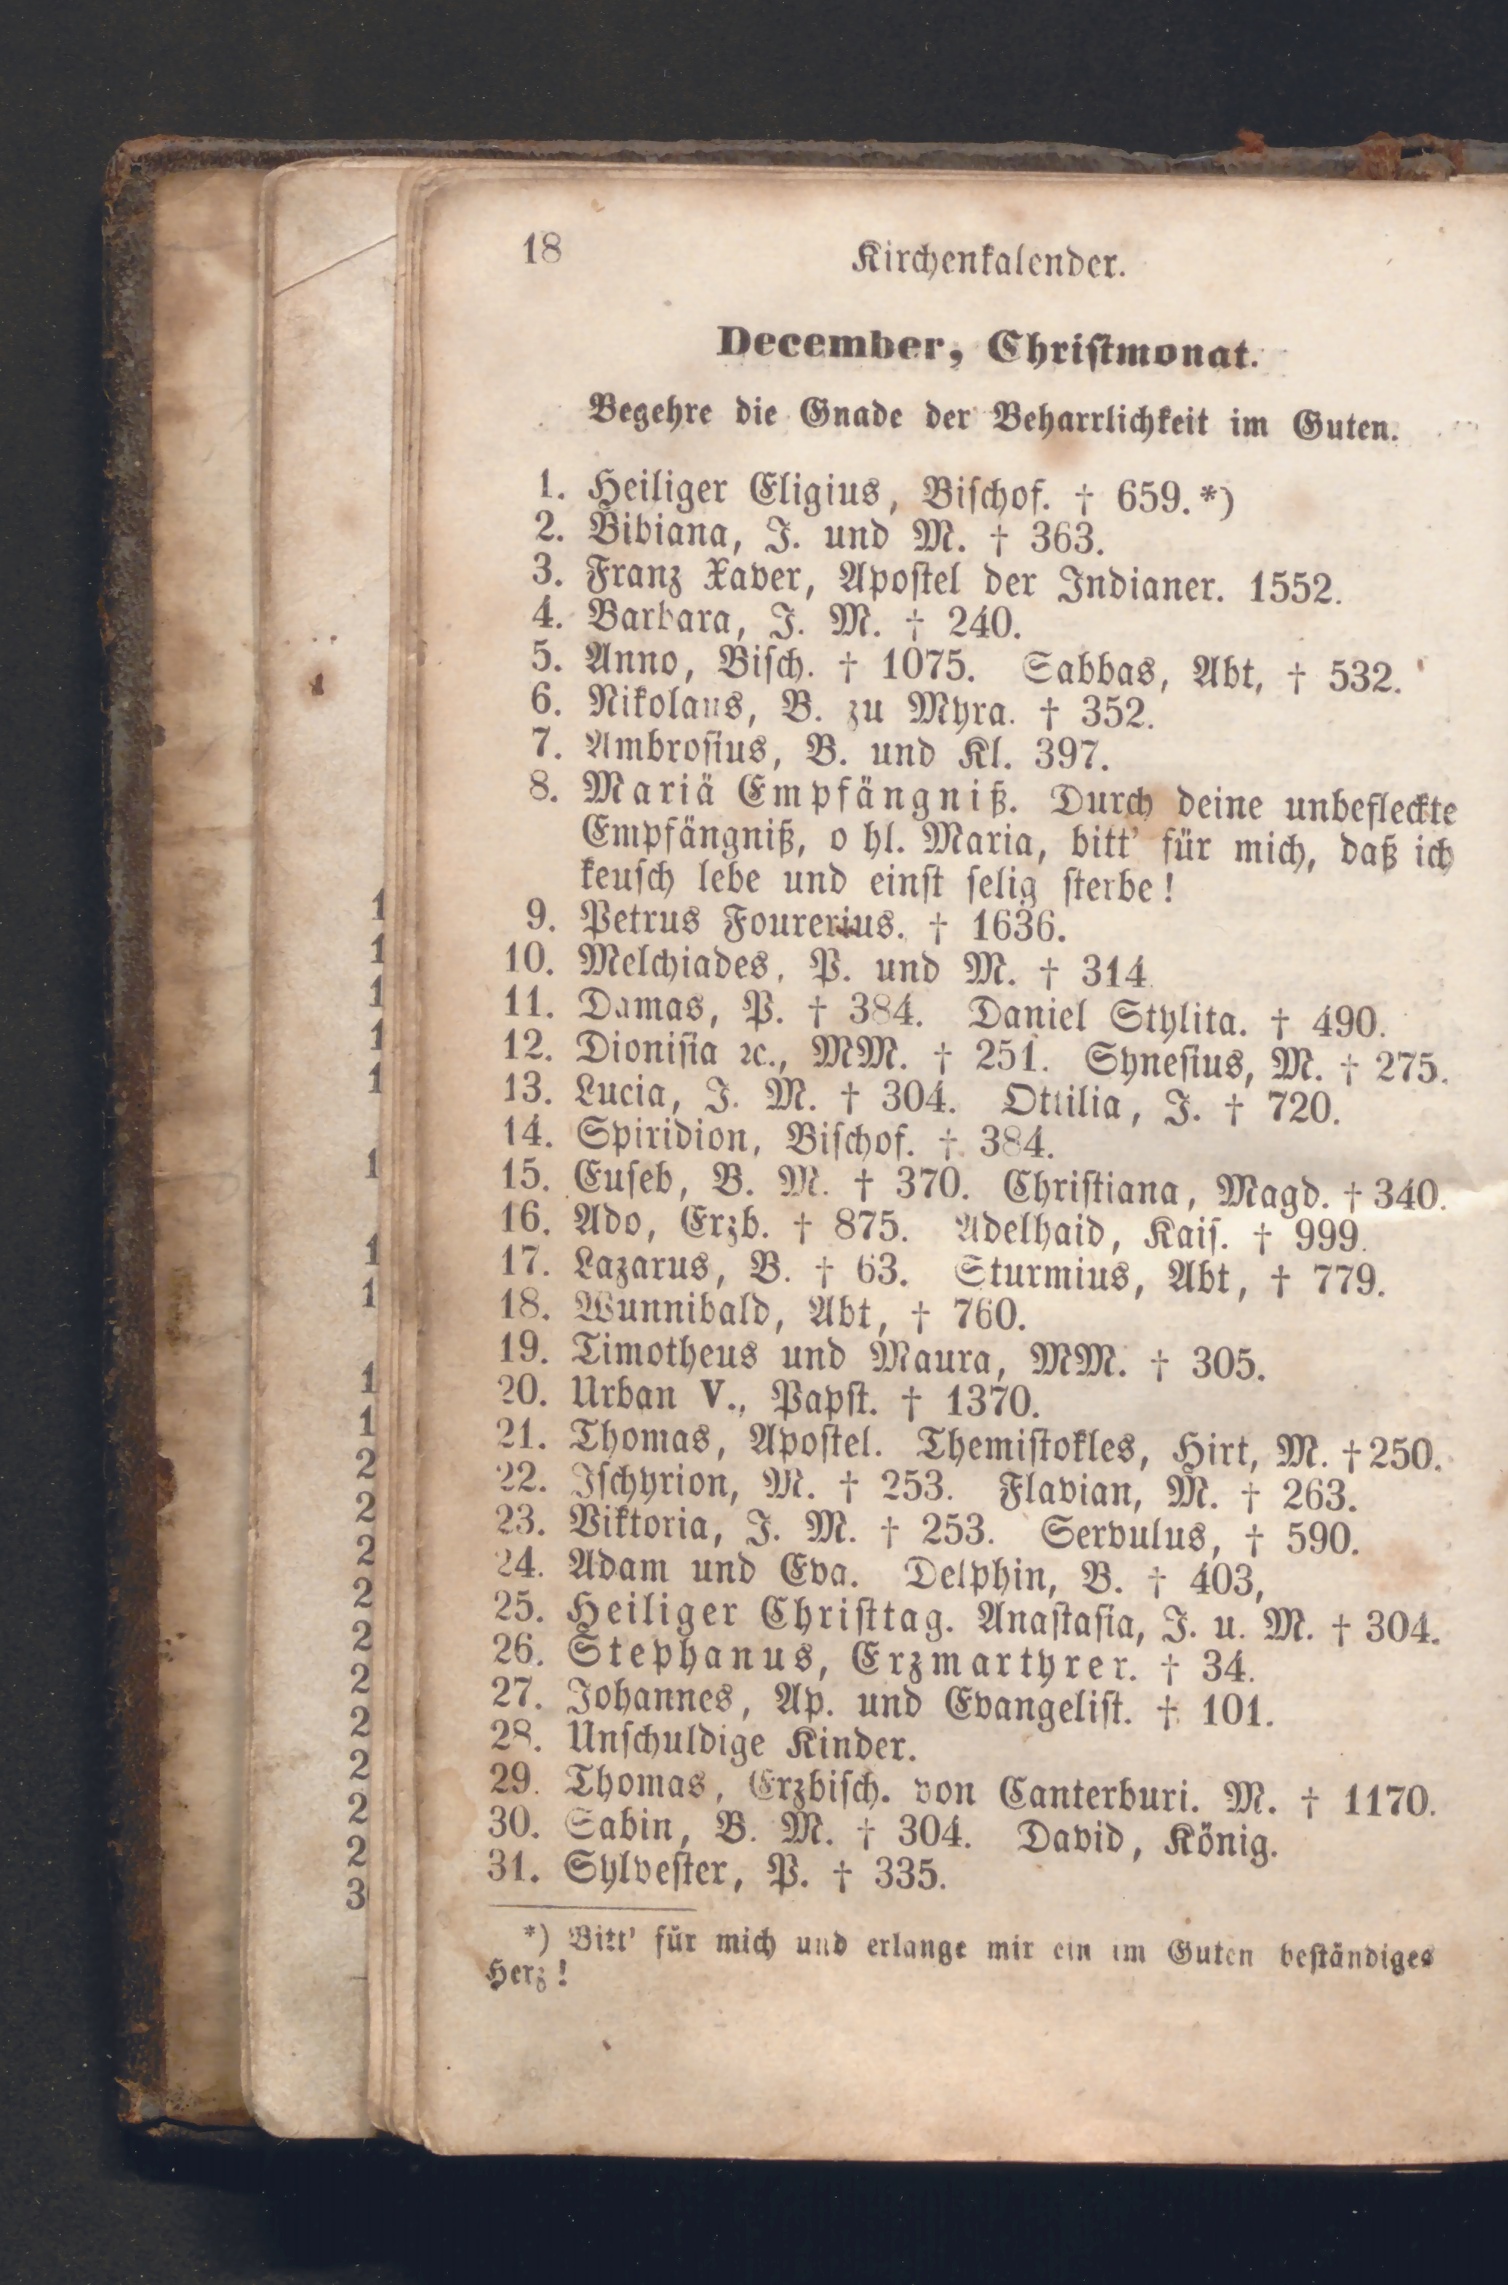 18 Kirchenkalender.
December, Christmonat.
Begehre die Gnade der Beharrlichkeit im Guten.
1. Heiliger Eligius, Bischof. † 659.*)
2. Bibiana, J. und M. † 363.
3. Franz Xaver, Apostel der Indianer. 1552.
4. Barbara, J. M. † 240.
5. Anno, Bisch. † 1075. Sabbas, Abt, † 532.
6. Nikolaus, B. zu Myra. † 352.
7. Ambrosius, B. und Kl. 397.
8. Mariä Empfängniß. Durch deine unbefleckte
Empfängniß, o hl. Maria, bitt' für mich, daß ich
keusch lebe und einst selig sterbe!
9. Petrus Fourerius. † 1636.
10. Melchiades, P. und M. † 314.
11. Damas, P. † 384. Daniel Stylita. † 490.
12. Dionisia ꝛc., MM. † 251. Synesius, M. † 275.
13. Lucia, J. M. † 304. Ottilia, J. † 720.
14. Spiridion, Bischof. † 384.
15. Euseb, B. M. † 370. Christiana, Magd. † 340.
16. Ado, Erzb. † 875. Adelhaid, Kais. † 999.
17. Lazarus, B. † 63. Sturmius, Abt, † 779.
18. Wunnibald, Abt, † 760.
19. Timotheus und Maura, MM. † 305.
20. Urban V., Papst. † 1370.
21. Thomas, Apostel. Themistokles, Hirt, M. † 250.
22. Ischyrion, M. † 253. Flavian, M. † 263.
23. Viktoria, J. M. † 253. Servulus, † 590.
24. Adam und Eva. Delphin, B. † 403,
25. Heiliger Christtag. Anastasia, J. u. M. † 304.
26. Stephanus, Erzmartyrer. † 34.
27. Johannes, Ap. und Evangelist. † 101.
28. Unschuldige Kinder.
29. Thomas, Erzbisch. von Canterburi. M. † 1170.
30. Sabin, B. M. † 304. David, König.
31. Sylvester, P. † 335.
*) Bitt' für mich und erlange mir ein im Guten beständiges
Herz!